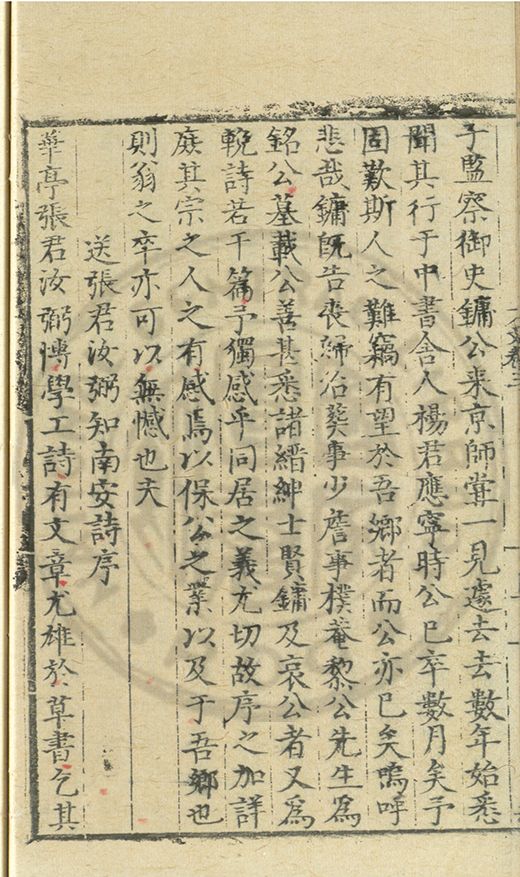 子監察御史鏞公来京師嘗一見遽去去數年始悉
聞其行于中書舍人楊君應寧時公已卒數月矣予
固歎斯人之難竊有望於吾鄉者而公亦已矣嗚呼
悲哉鏞旣告喪歸治葬事少詹事樸菴黎公先生為
銘公墓載公善甚悉諸縉紳士賢鏞及哀公者又為
輓詩若干篇予獨感乎同居之義尤切故序之加詳
庶其宗之人之有感焉以保公之業以及于吾鄉也
則翁之卒亦可以無憾也夫
送張君汝弼知南安詩序
華亭張君汝弼愽學工詩有文章尤雄於草書乞其